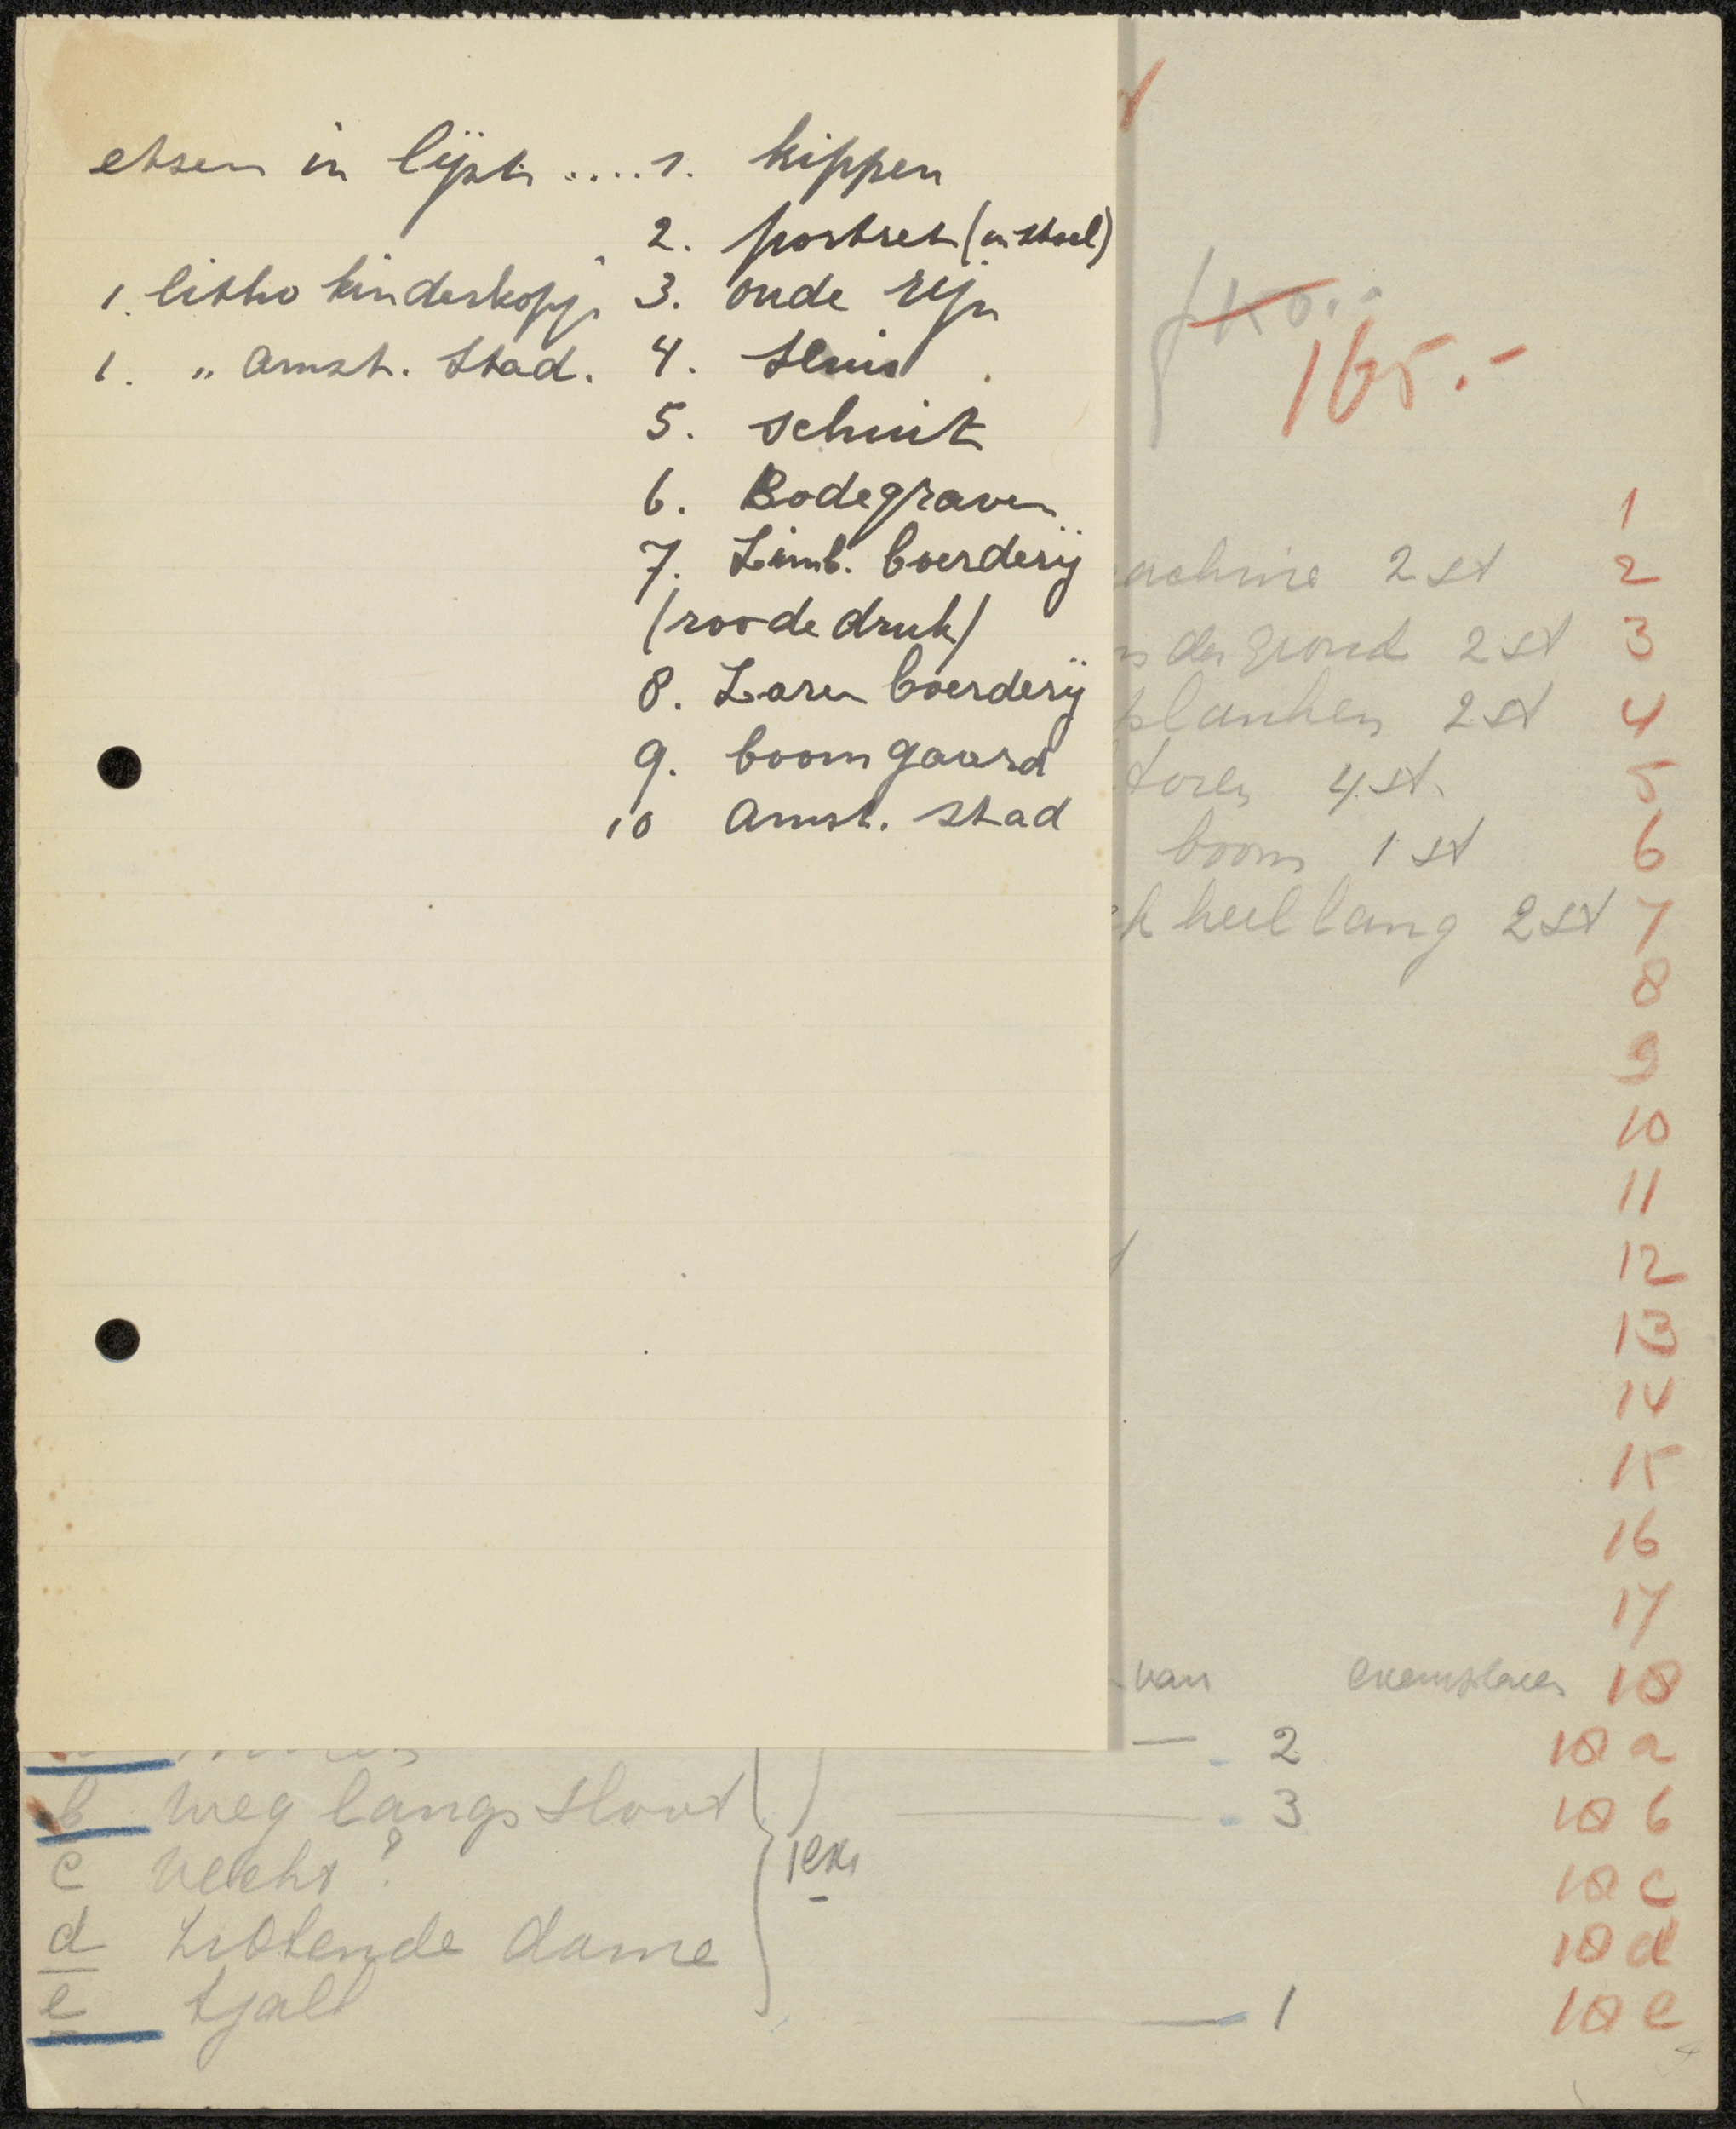 etsen in lijst ..... 1. kippen
2. portret (in stoel)
1. litho kinderkopj. 3. oude rijn
1. " Amst. Stad. 4. Sluis
5. schuit
6. Bodegraven
7. Limb. boerderij
(roode druk)
8. Laren boerderij
9. boomgaard
10 Amst. stad
165.-
1
achine 2 st 2
dergrond 2 st 3
planken 2 st 4
toren 4 st. 5
boom 1 st 6
k heel lang 2 st 7
8
9
10
11
12
13
14
15
16
17
van exemplaren 18
— 2 18 a
b weg langs sloot — 3 18 b
c Vecht? 1 ex. 18 c
d zittende dame 18 d
e tjalk — 1 18 e